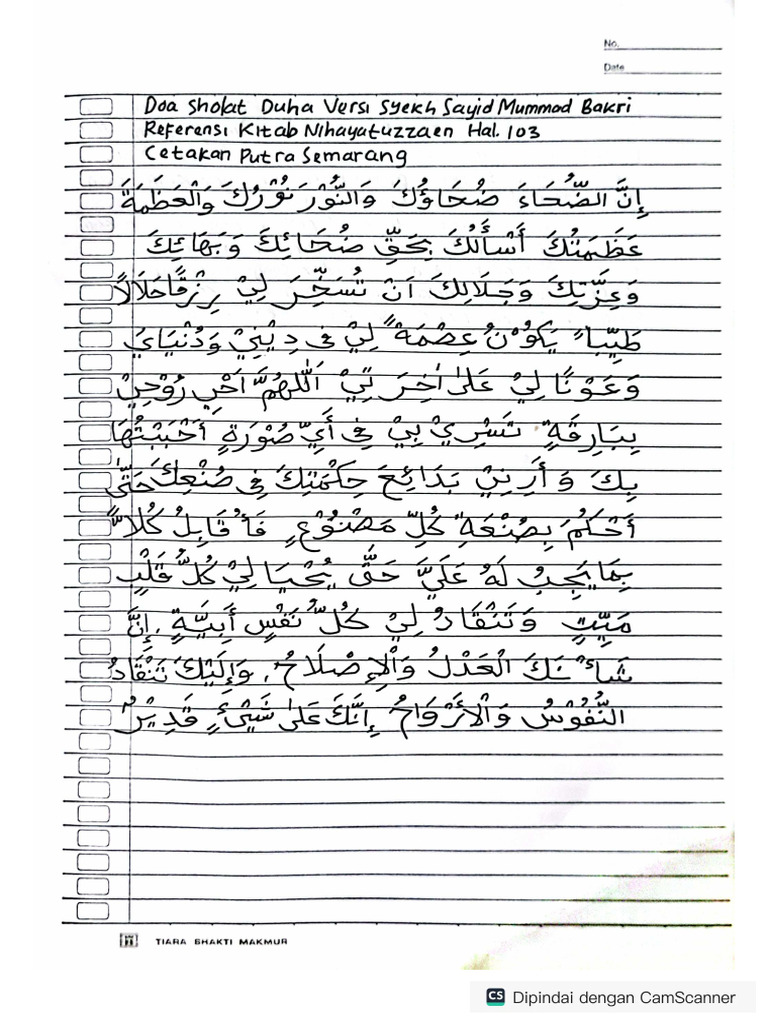 No.
Date
Doa Sholat Duha Versi Syekh Sayid Mummad Bakri
Referensi Kitab Nihayatuzzaen Hal. 103
Cetakan Putra Semarang
إِنَّ الضُّحَاءَ ضُحَاؤُكَ وَالنُّوْرَ نُوْرُكَ وَالْعَظَمَةَ
عَظَمَتُكَ أَسْأَلُكَ بِحَقِّ ضُحَائِكَ وَبَهَائِكَ
وَعِزَّتِكَ وَجَلَالِكَ اَنْ تُسَخِّرَ لِيْ رِزْقًا حَلَالًا
طَيِّبًا يَكُوْنُ عِصْمَةً لِيْ فِى دِيْنِيْ وَدُنْيَايَ
وَعَوْنًا لِيْ عَلَىٰ اٰخِرَتِيْ اَللّٰهُمَّ اَحْيِ رُوْحِيْ
بِبَارِقَةٍ تَسْرِيْ بِيْ فِى أَيِّ صُوْرَةٍ أَحْبَبْتُهَا
بِكَ وَأَرِنِيْ بَدَائِعَ حِكْمَتِكَ فِى صُنْعِكَ حَتّٰى
أَحْكُمَ بِصُنْعَةِ كُلِّ مَصْنُوْعٍ فَأُقَابِلُ كُلًّا
بِمَا يَجِبُ لَهُ عَلَيَّ حَتّٰى يُحْيَا لِيْ كُلُّ قَلْبٍ
مَيِّتٍ وَتَنْقَادُ لِيْ كُلُّ نَفْسٍ أَبِيَّةٍ، إِنَّ
شَأْنَكَ الْعَدْلُ وَالْإِصْلَاحُ، وَإِلَيْكَ تَنْقَادُ
النُّفُوْسُ وَالْأَرْوَاحُ إِنَّكَ عَلَىٰ شَيْئٍ قَدِيْرٌ
TIARA BHAKTI MAKMUR
CS Dipindai dengan CamScanner